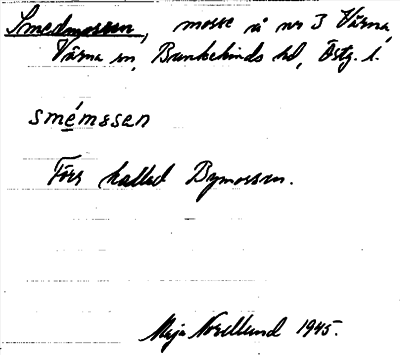 Smedmossen, mosse å nr 3 Värna,
Värna sn, Bankekinds hd, Östg. l.
smémssen
Förr kallad Dymossen.
Maja Norellund 1945.